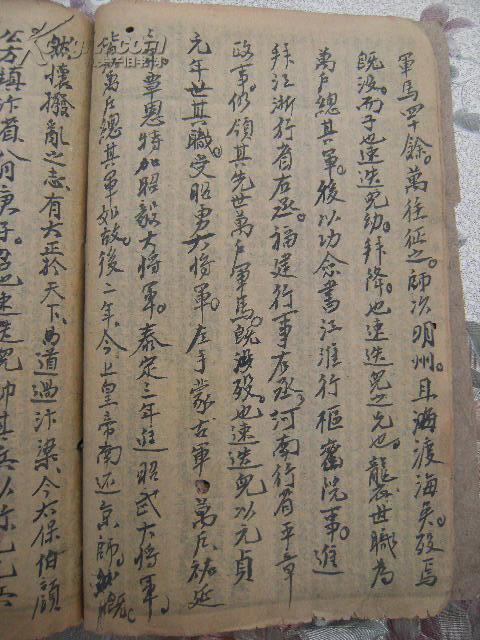 軍馬四十餘。萬往征之。師次明州。且渡海矣。歿焉
既没。而子也速迭兒幼。拜降。也速迭兒之兄也。襲世職為
萬戶總其軍。後以功僉書江淮行樞密院事。進
拜江浙行省右丞。福建行事右丞。河南行省平章
政事。仍領其先世萬戶軍馬。既歿。也速迭兒以元貞
元年世其職。受昭勇大將軍。左手蒙古軍 萬戶。祐延
章惠特加昭毅大將軍。泰定三年進昭武大將軍。
皆萬戶總其軍如故。後二年。今上皇帝南还京師。
然懷撥亂之志。有大正於天下。道過汴梁。今太保伯顏
方鎮汴省八月庚子。召也速迭兒帥其兵以